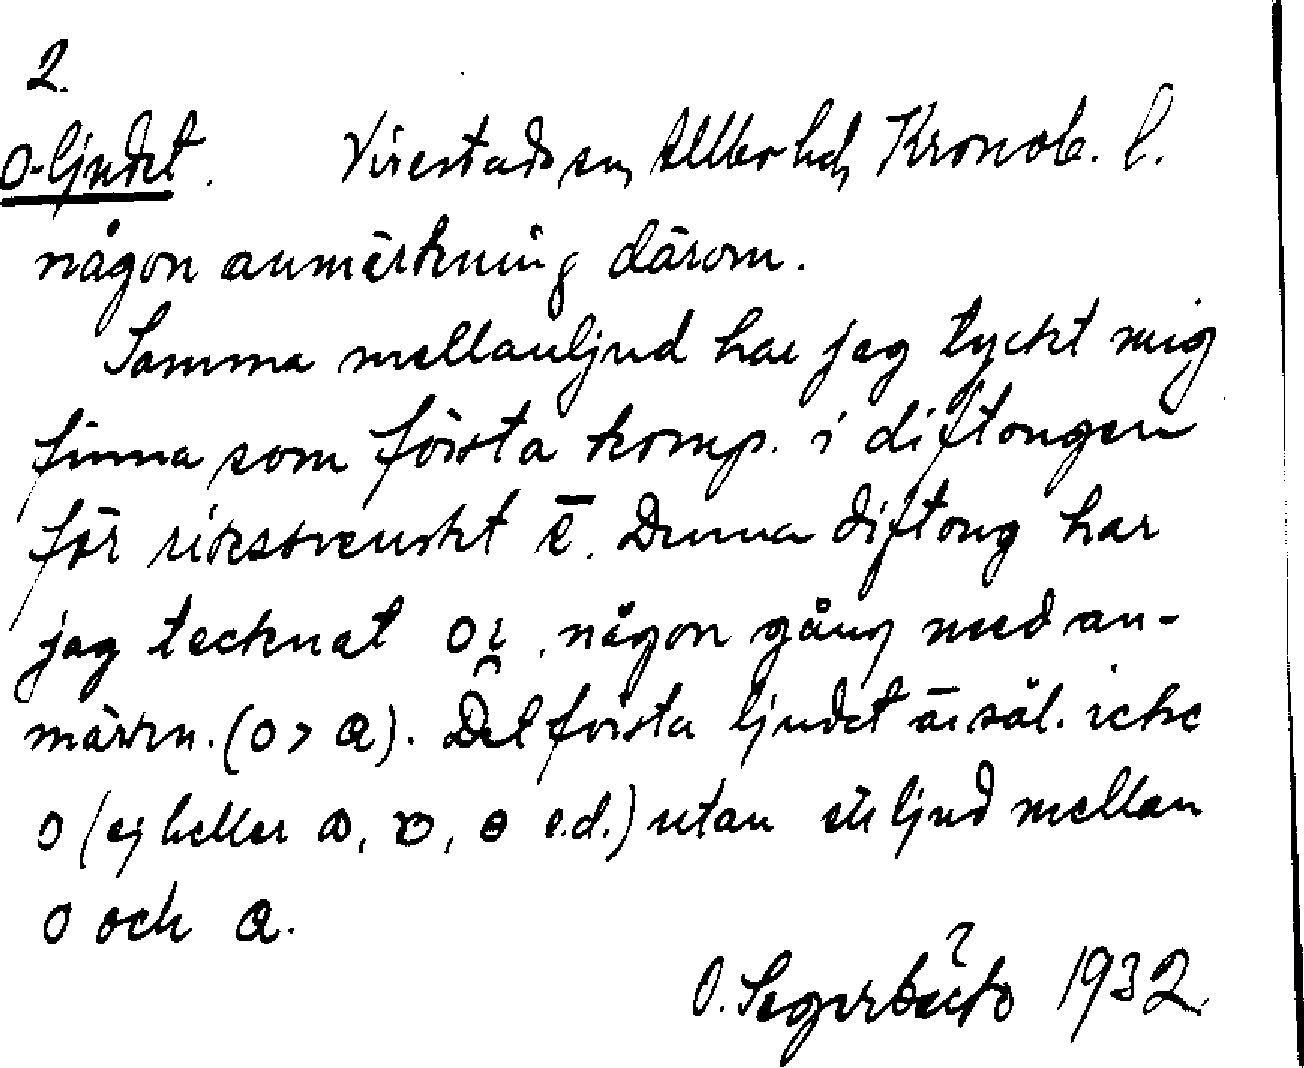 2.
o-ljudet. Virestads sn, Allbo hd, Kronob. l.
någon anmärkning därom.
Samma mellanljud har jag tyckt mig
finna som första komp. i diftongen
för riksvenskt ē. Denna diftong har
jag tecknat oi̯, någon gång med an-
märkn. (o > a). Det första ljudet är sål. icke
o (ej heller e.d.) utan ett ljud mellan
o och a.
O. 1932.